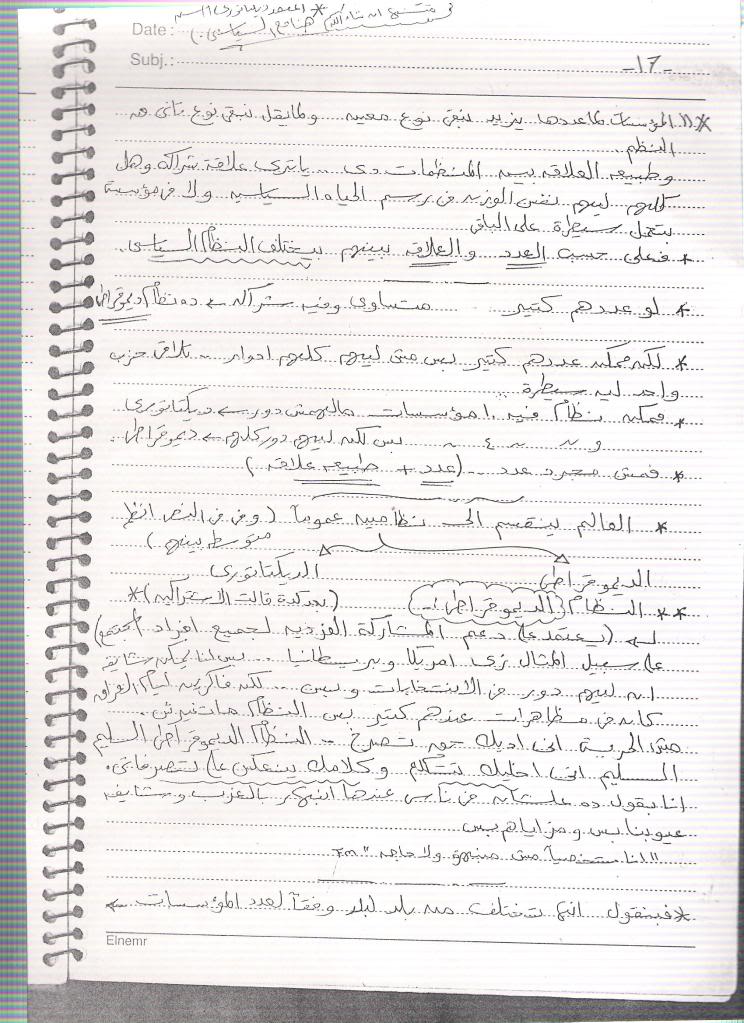 Date :
Subj. :
-١٦-
* المؤسسات لما عددها يزيد تبقى نوع معين ولما يقل تبقى نوع تانى من
النظم.
وطبيعة العلاقة بين المنظمات دى .. ياترى علاقة شراكة وهل
كلهم ليهم نفس الوزن فى رسم الحياه السياسيه ولا فى مؤسسة
سيطرة على الباقى
* فعلى حسب العدد والعلاقه بينهم يختلف النظام السياسى.
* لو عددهم كتير متساوى وفيه شراكه ← ده نظام ديموقراطى
* لكن ممكن عددهم كتير بس مش ليهم كلهم ادوار .. تلاقى حزب
واحد ليه سيطرة ..
* فممكن نظام فيه ١٠ مؤسسات مالهمش دور ← ديكتاتورى
و ~ ~ ٤ ~ بس لكن ليهم دور كلهم ← ديموقراطى.
* فمش مجرد عدد .. (عدد + طبيعه علاقه)
* العالم بينقسم الى نظامين عموماً (وفى فى النص انظمة
متوسط بينهم)
الديموقراطى الديكتاتورى
** النظام الديموقراطى :- (بعد كدة قالت الاشتراكيه) *
↳ (يعتمد على) دعم المشاركة الفردية لجميع افراد المجتمع
على سبيل المثال زى امريكا وبريطانيا .. بس لنا يمكن شايفه
ان ليهم دور فى الانتخابات وبس .. لكن فاكرين ايام العراق
كان فى مظاهرات عندهم كتير بس النظام ماتغيرش.
مش الحرية انى اديك حق تصرخ .. النظام الديموقراطى السليم
السليم انى اخليك تتكلم وكلامك ينعكس على تصرفاتى.
انا بقول ده علشان فى ناس عندها انبهار بالغرب وشايفه
عيوبنا بس ومزاياهم بس
"انا شخصياً مش منبهرة ولا حاجه"
* فبنقول انها تختلف من بلد لبلد وفقاً لعدد المؤسسات ←
Elnemr